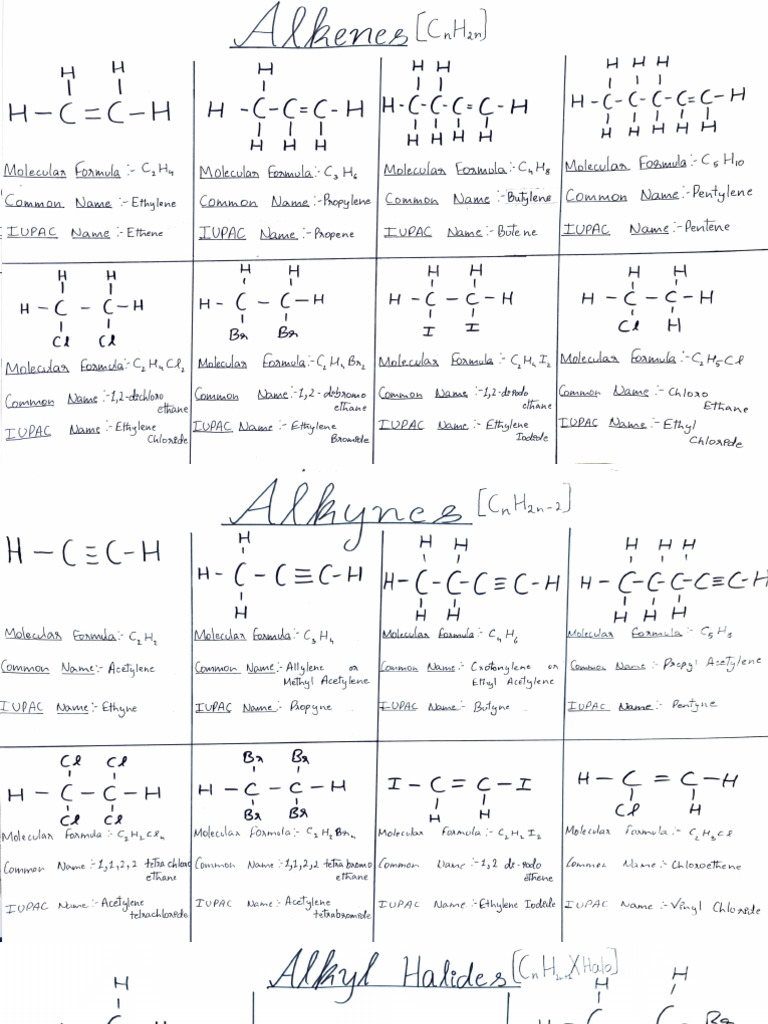 Alkenes [CnH2n]
H H
H - C = C - H
Molecular Formula :- C2H4
Common Name :- Ethylene
IUPAC Name :- Ethene
H
H - C - C = C - H
H H H
Molecular Formula :- C3H6
Common Name :- Propylene
IUPAC Name :- Propene
H H
H - C - C - C = C - H
H H H H
Molecular Formula :- C4H8
Common Name :- Butylene
IUPAC Name :- Butene
H H H
H - C - C - C - C = C - H
H H H H H
Molecular Formula :- C5H10
Common Name :- Pentylene
IUPAC Name :- Pentene
H H
H - C - C - H
Cl Cl
Molecular Formula :- C2H4Cl2
Common Name :- 1,2-dichloro
ethane
IUPAC Name :- Ethylene
Chloride
H H
H - C - C - H
Br Br
Molecular Formula :- C2H4Br2
Common Name :- 1,2-dibromo
ethane
IUPAC Name :- Ethylene
Bromide
H H
H - C - C - H
I I
Molecular Formula :- C2H4I2
Common Name :- 1,2-diodo
ethane
IUPAC Name :- Ethylene
Iodide
H H
H - C - C - H
Cl H
Molecular Formula :- C2H5Cl
Common Name :- Chloro
Ethane
IUPAC Name :- Ethyl
Chloride
Alkynes [CnH2n-2]
H - C ≡ C - H
Molecular Formula :- C2H2
Common Name :- Acetylene
IUPAC Name :- Ethyne
H
H - C - C ≡ C - H
H
Molecular Formula :- C3H4
Common Name :- Allylene or
Methyl Acetylene
IUPAC Name :- Propyne
H H
H - C - C - C ≡ C - H
H H
Molecular Formula :- C4H6
Common Name :- Crotonylene or
Ethyl Acetylene
IUPAC Name :- Butyne
H H H
H - C - C - C - C ≡ C - H
H H H
Molecular Formula :- C5H8
Common Name :- Propyl Acetylene
IUPAC Name :- Pentyne
Cl Cl
H - C - C - H
Cl Cl
Molecular Formula :- C2H2Cl4
Common Name :- 1,1,2,2 tetra chloro
ethane
IUPAC Name :- Acetylene
tetrachloride
Br Br
H - C - C - H
Br Br
Molecular Formula :- C2H2Br4
Common Name :- 1,1,2,2 tetra bromo
ethane
IUPAC Name :- Acetylene
tetrabromide
I - C = C - I
H H
Molecular Formula :- C2H2I2
Common Name :- 1,2 di-iodo
ethene
IUPAC Name :- Ethylene Iodide
H - C = C - H
Cl H
Molecular Formula :- C2H3Cl
Common Name :- Chloroethene
IUPAC Name :- Vinyl Chloride
Alkyl Halides
H
C
H H
C C Br